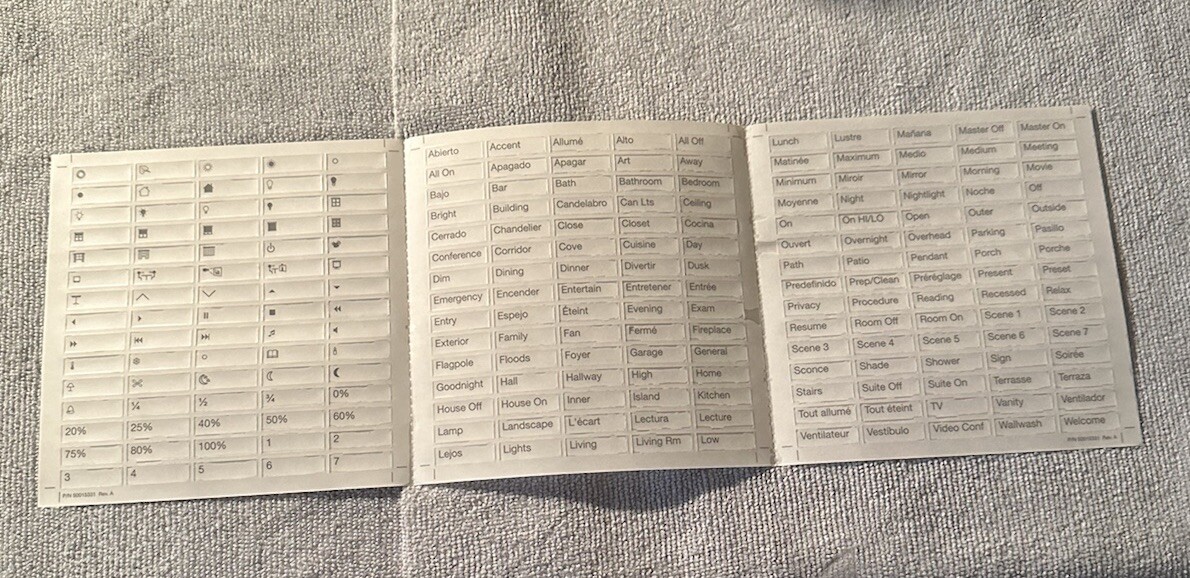 ¼ ½ ¾ 0%
20% 25% 40% 50% 60%
75% 80% 100% 1 2
3 4 5 6 7
Abierto Accent Allumé Alto All Off
All On Apagado Apagar Art Away
Bajo Bar Bath Bathroom Bedroom
Bright Building Candelabro Can Lts Ceiling
Cerrado Chandelier Close Closet Cocina
Conference Corridor Cove Cuisine Day
Dim Dining Dinner Divertir Dusk
Emergency Encender Entertain Entretener Entrée
Entry Espejo Éteint Evening Exam
Exterior Family Fan Fermé Fireplace
Flagpole Floods Foyer Garage General
Goodnight Hall Hallway High Home
House Off House On Inner Island Kitchen
Lamp Landscape L'écart Lectura Lecture
Lejos Lights Living Living Rm Low
Lunch Lustre Mañana Master Off Master On
Matinée Maximum Medio Medium Meeting
Minimum Miroir Mirror Morning Movie
Moyenne Night Nightlight Noche Off
On On HI/LO Open Outer Outside
Ouvert Overnight Overhead Parking Pasillo
Path Patio Pendant Porch Porche
Predefinido Prep/Clean Préréglage Present Preset
Privacy Procedure Reading Recessed Relax
Resume Room Off Room On Scene 1 Scene 2
Scene 3 Scene 4 Scene 5 Scene 6 Scene 7
Sconce Shade Shower Sign Soirée
Stairs Suite Off Suite On Terrasse Terraza
Tout allumé Tout éteint TV Vanity Ventilador
Ventilateur Vestíbulo Video Conf Wallwash Welcome